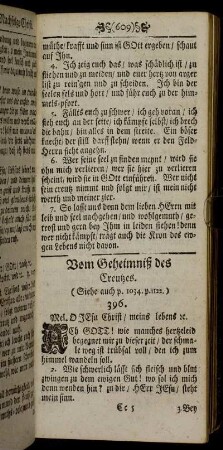 (609)
müthe/ krafft und sinn ist GOtt ergeben/ schaut
auf Jhn.
4. Jch zeig euch das/ was schädlich ist/ zu
fliehen und zu meiden/ und euer hertz von arger
list zu reinigen und zu scheiden. Jch bin der
seelen fels und hort/ und führ euch zu der him-
mels-pfort.
5. Fällts euch zu schwer/ ich geh voran/ ich
steh euch an der seite/ ich kämpffe selbst/ ich brech
die bahn/ bin alles in dem streite. Ein böser
knecht/ der still darf stehen/ wenn er den Feld-
Herrn sieht angehn.
6. Wer seine seel zu finden meynt/ wird sie
ohn mich verlieren/ wer sie hier zu verlieren
scheint/ wird sie in GOtt einführen. Wer nicht
sein creutz nimmt und folgt mir/ ist mein nicht
werth und meiner zier.
7. So laßt uns denn dem lieben HErrn mit
leib und seel nachgehen/ und wohlgemuth/ ge-
trost und gern bey Jhm im leiden stehen! denn
wer nicht kämpfft/ trägt auch die Kron des ewi-
gen Lebens nicht davon.
Vom Geheimniß des
Creutzes.
(Siehe auch p. 1034. p. 1122.)
396.
Mel. O JEsu Christ/ meins lebens ꝛc.
ACh GOTT! wie manches hertzeleid
begegnet mir zu dieser zeit/ der schma-
le weg ist trübsal voll/ den ich zum
himmel wandeln soll.
2. Wie schwerlich läßt sich fleisch und blut
zwingen zu dem ewigen Gut! wo soll ich mich
denn wenden hin? zu die/ HErr JEsu/ steht
mein sinn.
Cc 5
3. Bey